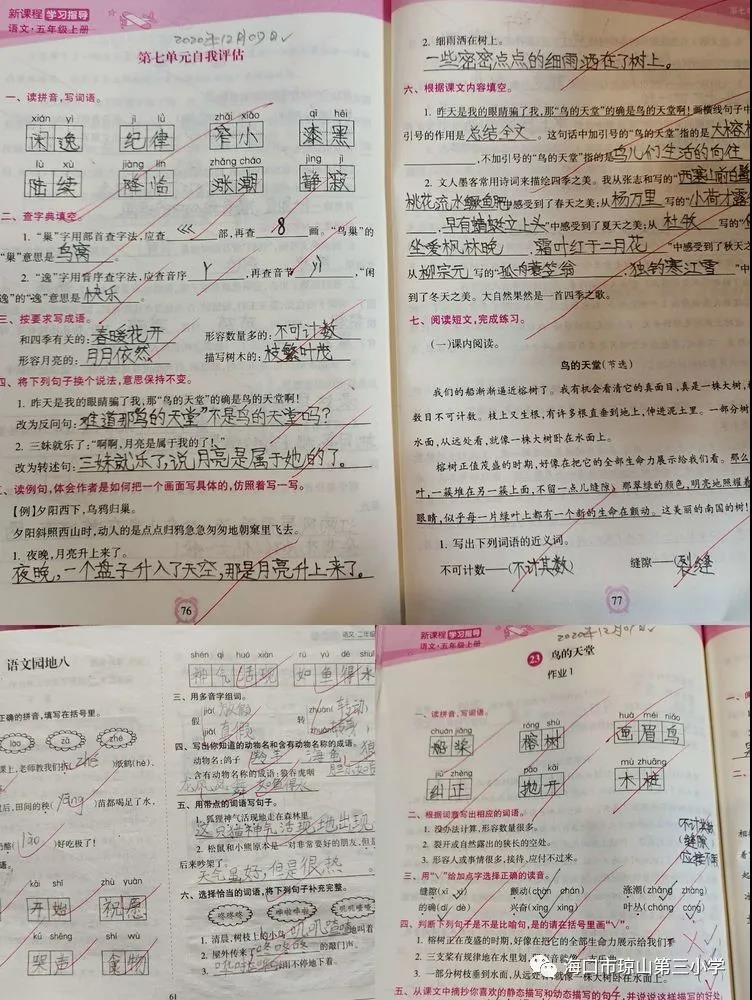 新课程 学习指导
语文·五年级上册
2020年12月09日
第七单元自我评估
一、读拼音，写词语。
xián yì jì lǜ zhǎi xiǎo qī hēi
闲逸 纪律 窄小 漆黑
lù xù jiàng lín zhǎng cháo jìng jì
陆续 降临 涨潮 静寂
二、查字典填空。
1. “巢”字用部首查字法，应查 巛 部，再查 8 画。“鸟巢”的
“巢”意思是 鸟窝 。
2. “逸”字用音序查字法，应查音序 Y ，再查音节 yì ，“闲
逸”的“逸”意思是 快乐 。
三、按要求写成语。
和四季有关的：春暖花开 形容数量多的：不可计数
形容月亮的：月月依然 描写树木的：枝繁叶茂
四、将下列句子换个说法，意思保持不变。
1. 昨天是我的眼睛骗了我，那“鸟的天堂”的确是鸟的天堂啊！
改为反问句：难道那“鸟的天堂”不是鸟的天堂吗？
2. 三妹就乐了：“啊啊，月亮是属于我的了！”
改为转述句：三妹就乐了，说月亮是属于她的了。
读例句，体会作者是如何把一个画面写具体的，仿照着写一写。
【例】夕阳西下，乌鸦归巢。
夕阳斜照西山时，动人的是点点归鸦急急匆匆地朝窠里飞去。
1. 夜晚，月亮升上来了。
夜晚，一个盘子升入了天空，那是月亮升上来了。
76
2. 细雨洒在树上。
一些密密点点的细雨洒在了树上。
六、根据课文内容填空。
1. 昨天是我的眼睛骗了我，那“鸟的天堂”的确是鸟的天堂啊！画横线句子中
引号的作用是 总结全文 。这句话中加引号的“鸟的天堂”指的是 大榕
，不加引号的“鸟的天堂”指的是 鸟儿们生活的向住
2. 文人墨客常用诗词来描绘四季之美。我从张志和写的“西塞山前白鹭
桃花流水鳜鱼肥”中感受到了春天之美；从 杨万里 写的“小荷才露
，早有蜻蜓立上头”中感受到了夏天之美；从 杜牧 写的“
坐爱枫林晚 霜叶红于二月花 ”中感受到了秋天之
从 柳宗元 写的“孤舟蓑笠翁 ，独钓寒江雪 ”中
到了冬天之美。大自然果然是一首四季之歌。
七、阅读短文，完成练习。
（一）课内阅读。
鸟的天堂（节选）
我们的船渐渐逼近榕树了。我有机会看清它的真面目，真是一株大树，
数目不可计数。枝上又生根，有许多根直垂到地上，伸进泥土里。一部分树
水面，从远处看，就像一株大树卧在水面上。
榕树正值茂盛的时期，好像在把它的全部生命力展示给我们看。那么
叶，一簇堆在另一簇上面，不留一点儿缝隙。那翠绿的颜色，明亮地照耀着
眼睛，似乎每一片绿叶上都有一个新的生命在颤动。这美丽的南国的树！
1. 写出下列词语的近义词。
不可计数——（不计其数） 缝隙——（裂缝
77
语文·二年级
语文园地八
正确的拼音，填写在括号里。
lào zā zhé
课上，老师教我们折（zhé）纸鹤（hè）。
过后，田间的秧（yāng）苗都喝足了水，
好吃极了！
kāi shǐ zhù yuàn
开始 祝愿
kū shēng shí wù
哭声 食物
shén qì huó xiàn rú yú dé shuǐ
神气活现 如鱼得水
三、用多音字组词。
假 jià 放假 转 zhuǎn 转动
jiǎ 真假 zhuàn
四、写出你知道的动物名和含有动物名称的成语。
动物名：鸽子
含有动物名称的成语：狼吞虎咽
五、用带点的词语写句子。
1. 狐狸神气活现地走在森林里。
这只猫神气活现地出现
2. 松鼠和小熊原本是一对非常要好的朋友，但是
后来吵架了。
天气虽好，但是很热。
六、选择恰当的词语，将下列句子补充完整。
咚咚咚 叽叽喳喳
1. 清晨，树枝上的小鸟 叽叽喳喳 地叫着
2. 屋外传来了 咚咚咚 的敲门声。
3. 雨不停地下着。
61
新课程 学习指导
语文·五年级上册
2020年12月09日
23 鸟的天堂
作业1
一、读拼音，写词语。
chuán jiǎng róng shù huà méi niǎo
船桨 榕树 画眉鸟
jiū zhèng pāo kāi mù zhuāng
纠正 抛开 木桩
二、根据意思写出相应的词语。
1. 没办法计算，形容数量很多。 （不计其数
2. 裂开或自然露出的狭长的空处。 （缝隙
3. 形容人或事情很多，接待、应付不过来。 （应接不
三、用“√”给加点字选择正确的读音。
缝隙（xì xī） 颤动（chàn zhàn） 涨潮（zhǎng zhàng）
的确（dí dè） 兴奋（xīng xìng） 叶丛（chóng cóng）
四、判断下列句子是不是比喻句，是的请在括号里画“√”。
1. 榕树正在茂盛的时期，好像在把它的全部生命力展示给我们看
2. 三支桨有规律地在水里划
3. 一部分树枝垂到水面，从远处看，就像一株大树卧在水面上。
五、从课文中摘抄你喜欢的静态描写和动态描写的句子，并说说这样描写的好处
海口市琼山第三小学